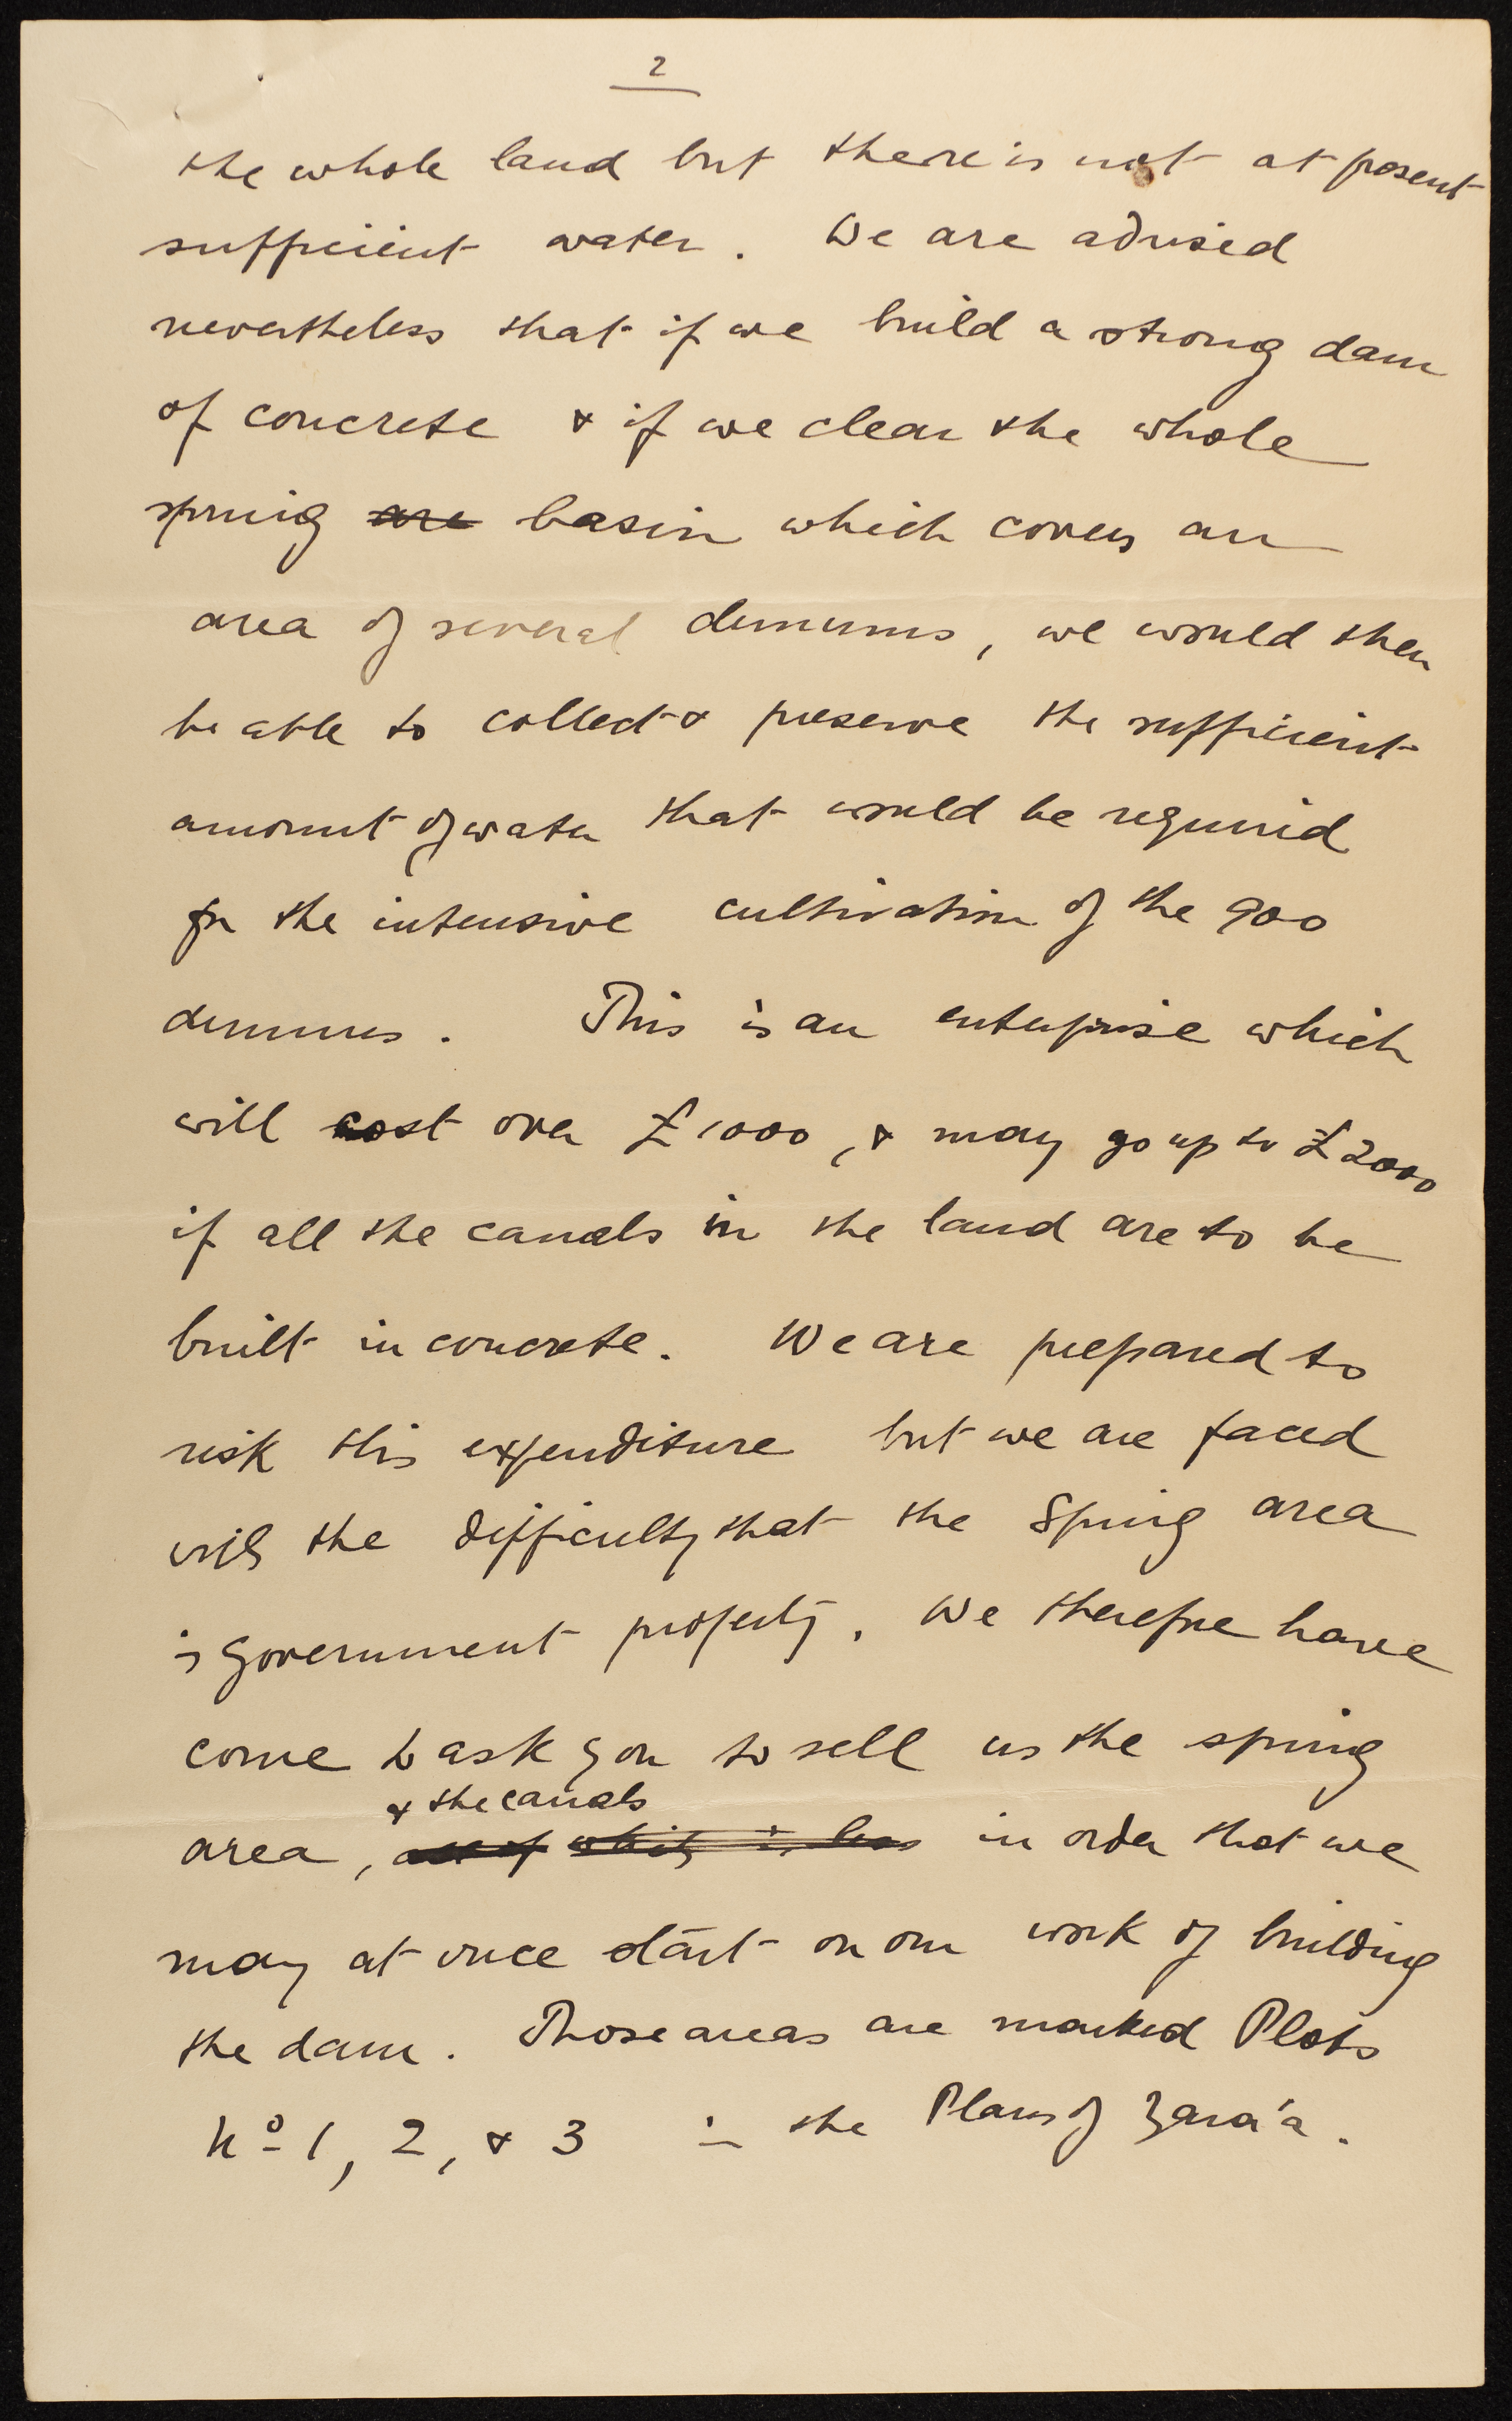 2
the whole land but there is not at present
sufficient water. We are advised
nevertheless that if we build a strong dam
of concrete & if we clear the whole
spring are basin which covers an
area of several dunums, we would then
be able to collect & preserve the sufficient
amount of water that would be required
for the intensive cultivation of the 900
dunums. This is an enterprise which
will cost over £1000, & may go up to £2000
if all the canals in the land are to be
built in concrete. We are prepared to
risk this expenditure but we are faced
with the difficulty that the Spring area
is Government property. We therefore have
come to ask you to sell us the spring
& the canals
area, all of which is less in order that we
may at once start on our work of building
the dam. Those areas are marked Plots
No 1, 2, & 3 in the Plans of Zara'a.